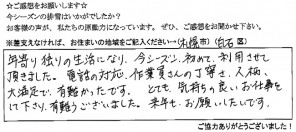 ☆ご感想をお願いします☆
今シーズンの排雪はいかがでしたか？
お客様の声が、私たちの原動力になっています。ぜひ、ご感想をお聞かせ下さい。
※差支えなければ、お住まいの地域をご記入ください→（札幌市）（白石区）
年寄り独りの生活になり、今シーズン、初めて、利用させて
頂きました。電話の対応、作業員さんの丁寧さ、人柄、
大満足で、有難かったです。とても、気持ちの良いお仕事を
して下さり、有難うございました。来年も、お願いいたします。
ご協力ありがとうございました！